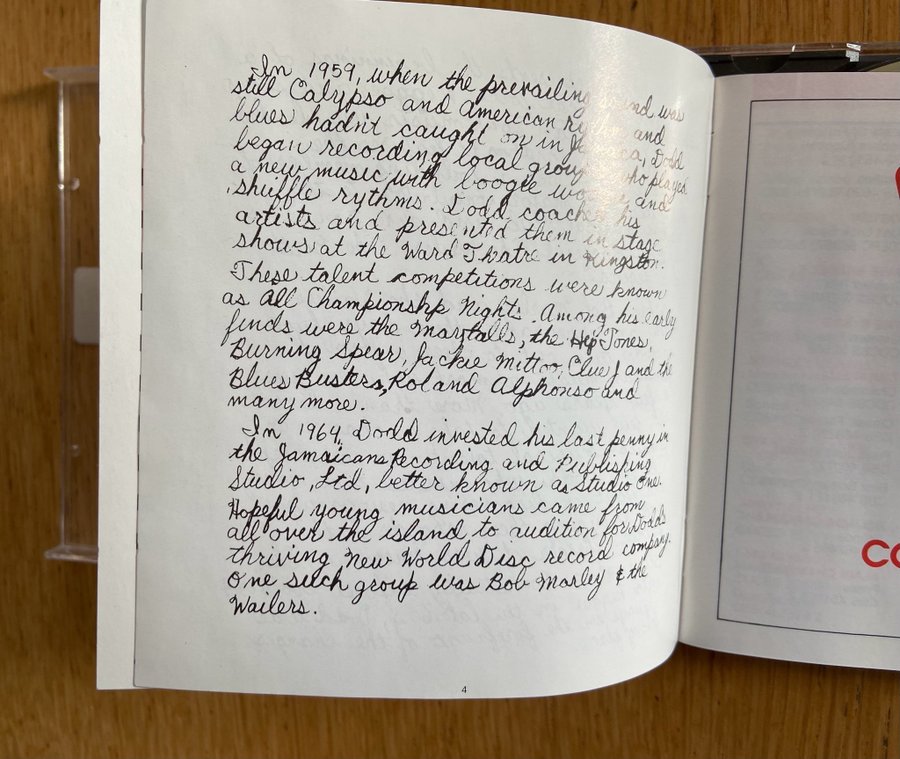 In 1959, when the prevailing sound was
still Calypso and American rythm and
blues hadn't caught on in Jamaica, Dodd
began recording local groups who played
a new music with boogie woogie and
shuffle rythms. Dodd coached his
artists and presented them in stage
shows at the Ward Theatre in Kingston.
These talent competitions were known
as All Championship Nights. Among his early
finds were the Maytalls, the Hep Tones,
Burning Spear, Jackie Mittoo, Clue J and the
Blues Busters, Roland Alphonso and
many more.
In 1964, Dodd invested his last penny in
the Jamaicans Recording and Publishing
Studio, Ltd, better known as Studio One.
Hopeful young musicians came from
all over the island to audition for Dodd's
thriving New World Disc record company.
One such group was Bob Marley & the
Wailers.
4
CO